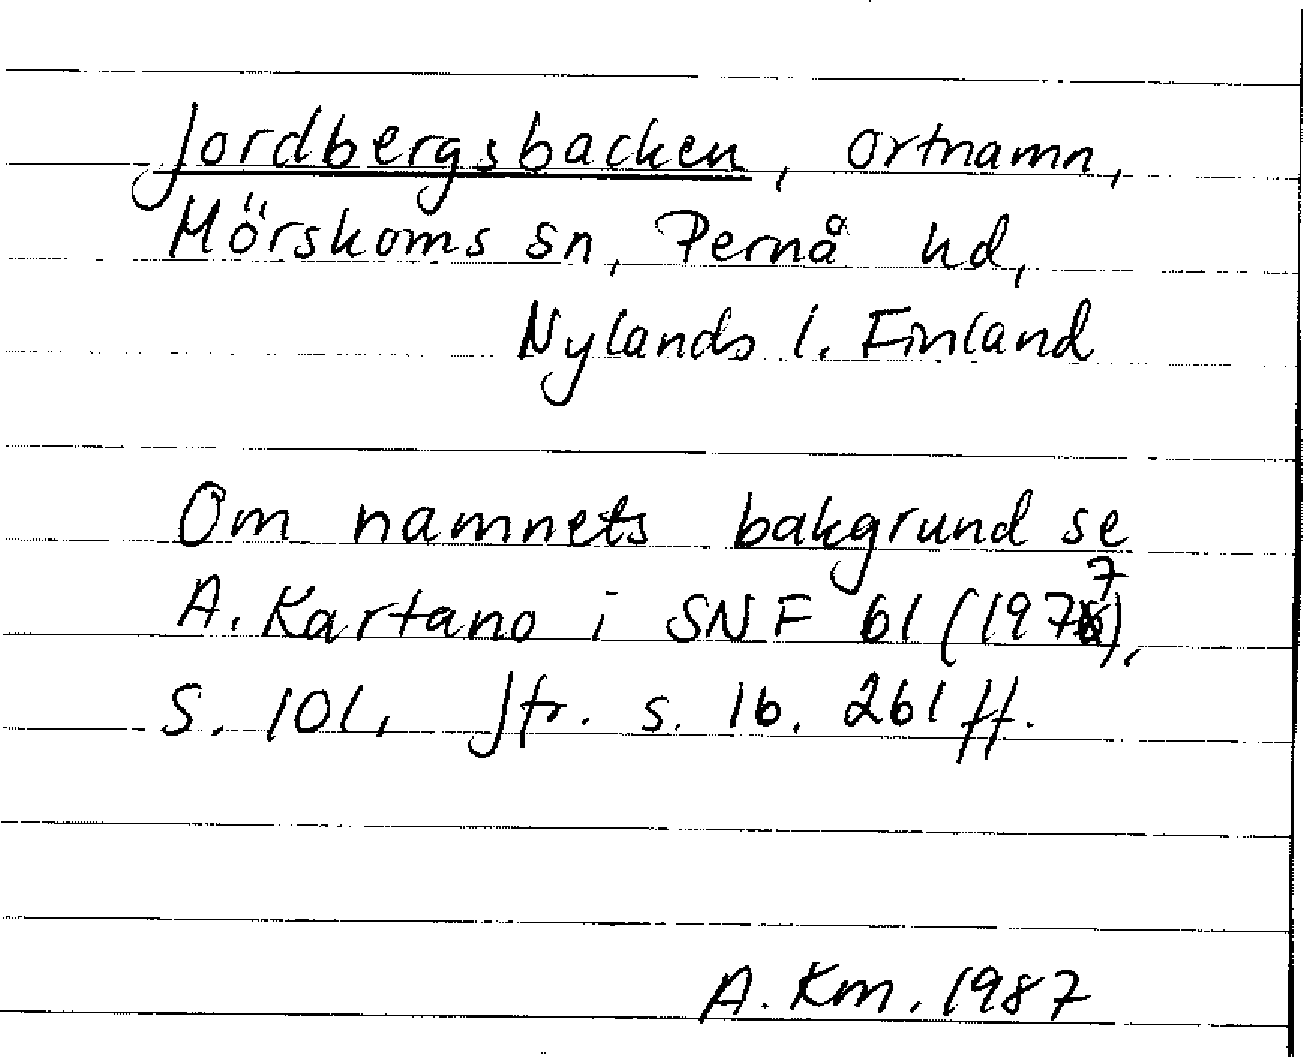 Jordbergsbacken, ortnamn,
Mörskoms sn, Pernå hd,
Nylands l. Finland
Om namnets bakgrund se
A. Kartano i SNF 61 (1977),
s. 101, Jfr. s. 16. 261 ff.
A. Km. 1987